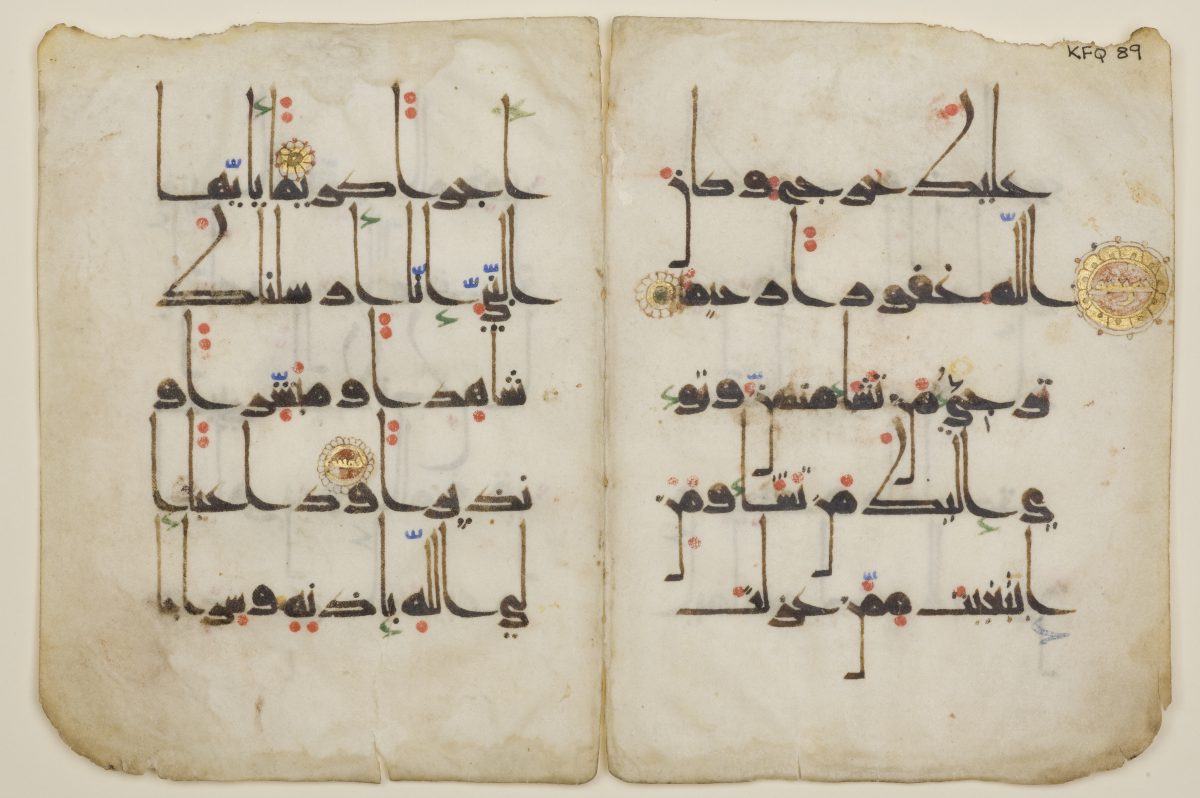 KFQ 89
عليك حرج وكان
الله غفورا رحيما
ترجي من تشا منهن وتو
ي اليك من تشا ومن
ابتغيت ممن عزلت
اجرا كريما يايها
النبي انّا ارسلناك
شاهدا ومبشّرا و
نذيرا وداعيا ا
لي الله باذنه وسراجا